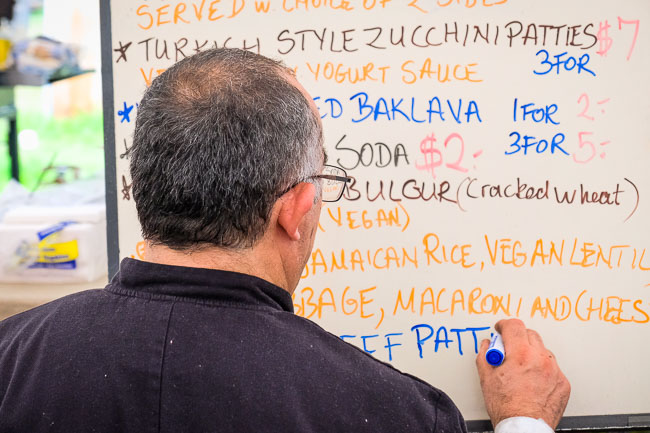 SERVED W. CHOICE OF 2 SIDES
* TURKISH STYLE ZUCCHINI PATTIES $7
YOGURT SAUCE 3 FOR
* ED BAKLAVA 1 FOR 2-
3 FOR 5-
* SODA $2-
* BULGUR (cracked wheat)
(VEGAN)
JAMAICAN RICE, VEGAN LENTIL
BBAGE, MACARONI AND CHEES
EEF PATT